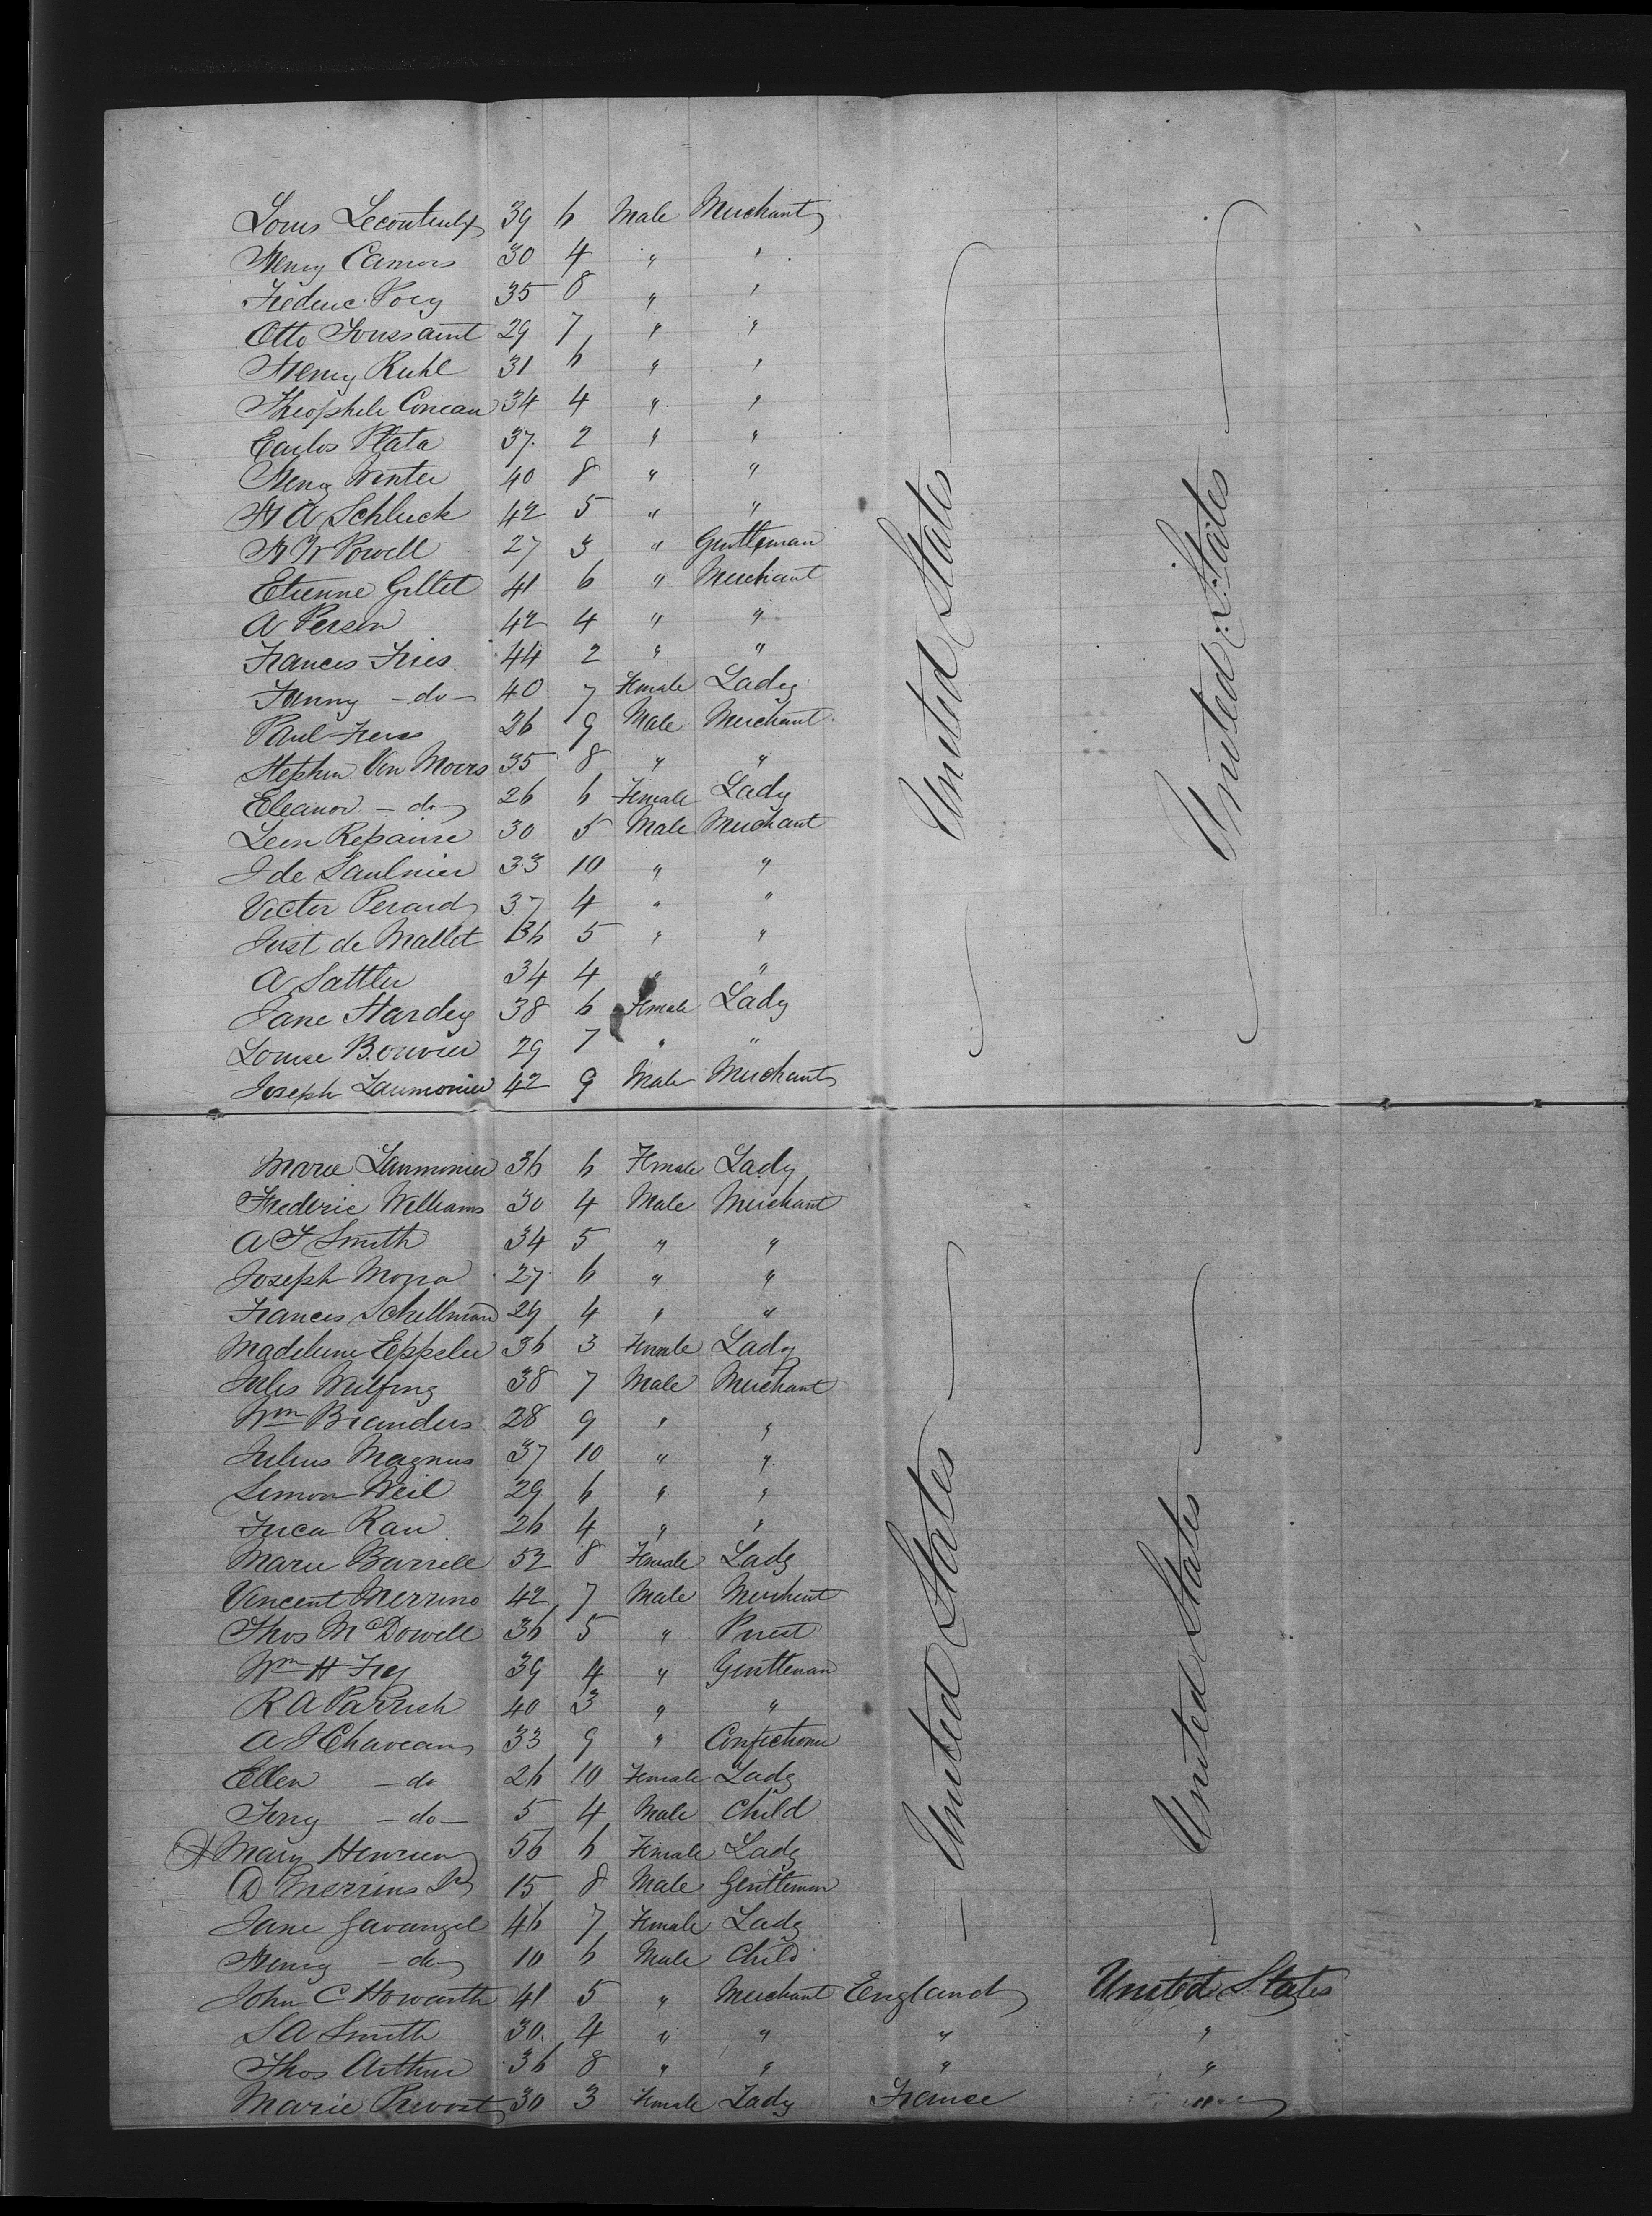 Louis Lecouteulx 39 6 Male Merchant
Henry Camors 30 4 " "
Frederic Poey 35 8 " "
Otto Toussaint 29 7 " "
Henry Ruhl 31 6 " "
Theophile Coneau 34 4 " "
Carlos Plata 37 2 " "
Henry Winter 40 8 " "
H A Schluck 42 5 " "
H W Powell 27 3 " Gentleman
Etienne Gillet 41 6 " Merchant
A Person 42 4 " "
Frances Fries 44 2 " "
Fanny - do - 40 7 Female Lady
Paul Fries 26 9 Male Merchant
Stephen Van Moers 35 8 " "
Eleanor - do 26 6 Female Lady
Leon Repaire 30 5 Male Merchant
J de Saulnier 33 10 " "
Victor Perard 37 4 " "
Just de Mallet 36 5 " "
A Sattler 34 4 " "
Jane Hardey 38 6 Female Lady
Louise Bouvier 29 7 " "
Joseph Laumonier 42 9 Male Merchant
United States United States
Marie Laumonier 36 6 Female Lady
Frederic Williams 30 4 Male Merchant
A F Smith 34 5 " "
Joseph Mora 27 6 " "
Frances Schellman 29 4 " "
Madeleine Eppeler 36 3 Female Lady
Jules Wulfing 38 7 Male Merchant
Wm Branders 28 9 " "
Julius Magnus 37 10 " "
Simon Weil 29 6 " "
Rau 26 4 " "
Marie Barrell 52 8 Female Lady
Vincent Merrino 42 7 Male Merchant
Thos McDowell 36 5 " Priest
Wm H Fry 39 4 " Gentleman
R A Parrish 40 3 " "
A J Chaveau 33 9 " Confectioner
Ellen - do 26 10 Female Lady
- do - 5 4 Male Child
Mary Henrien 56 6 Female Lady
D Merrins Jr 15 8 Male Gentleman
Jane Gavanzel 46 7 Female Lady
Henry - do 10 6 Male Child
United States United States
John C Howarth 41 5 " Merchant England United States
S A Smith 30 4 " " " "
Thos Arthur 36 8 " " " "
Marie Prevost 30 3 Female Lady France